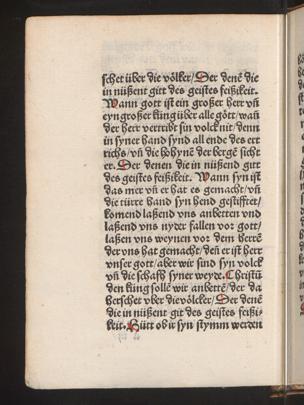 schet über die völker/Der denē die
in nüßent gitt des geistes feißikeit.
Wann gott ist ein großer herr vñ
eyn großer küng über alle gött/wañ
der herr vertribt sin volck nit/denn
in syner hand synd all ende des ert
richs/vñ die höhynē der bergē sicht
er. Der denen die in nüßend gitt
des geistes feißikeit. Wann syn ist
das mer vñ er hat es gemacht/vñ
die türre hand syn hend gestifftet/
komend laßend vns anbetten vnd
laßend vns nyder fallen vor gott/
laßen vns weynen vor dem herrē
der vns hat gemacht/deñ er ist herr
vnser gott/aber wir sind syn volck
vñ die schafh syner weyde. Christū
den küng sollē wir anbettē/der da
herschet vber die völcker/Der denē
die in nüßent git des geistes feißi-
keit. Hütt ob ir syn stymm werden